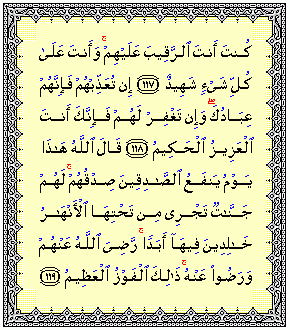 كُنتَ أَنتَ ٱلرَّقِيبَ عَلَيْهِمْ ۚ وَأَنتَ عَلَىٰ
كُلِّ شَىْءٍ شَهِيدٌ ﴿١١٧﴾ إِن تُعَذِّبْهُمْ فَإِنَّهُمْ
عِبَادُكَ ۖ وَإِن تَغْفِرْ لَهُمْ فَإِنَّكَ أَنتَ
ٱلْعَزِيزُ ٱلْحَكِيمُ ﴿١١٨﴾ قَالَ ٱللَّهُ هَـٰذَا
يَوْمُ يَنفَعُ ٱلصَّـٰدِقِينَ صِدْقُهُمْ ۚ لَهُمْ
جَنَّـٰتٌ تَجْرِى مِن تَحْتِهَا ٱلْأَنْهَـٰرُ
خَـٰلِدِينَ فِيهَآ أَبَدًا ۚ رَّضِىَ ٱللَّهُ عَنْهُمْ
وَرَضُوا۟ عَنْهُ ۚ ذَٰلِكَ ٱلْفَوْزُ ٱلْعَظِيمُ ﴿١١٩﴾